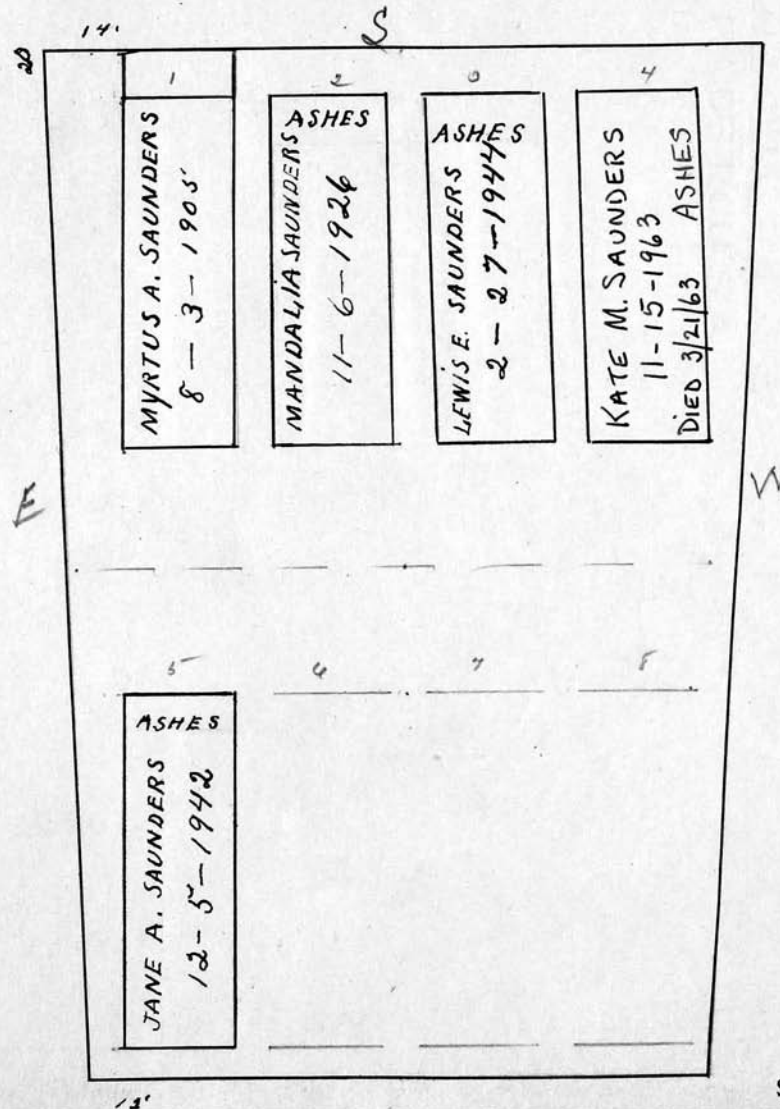 14'
S
20
1
2
3
4
MYRTUS A. SAUNDERS
8 - 3 - 1905
ASHES
MANDALIA SAUNDERS
11 - 6 - 1926
ASHES
LEWIS E. SAUNDERS
2 - 27 - 1944
KATE M. SAUNDERS
11-15-1963
DIED 3/21/63 ASHES
E
5
6
7
8
ASHES
JANE A. SAUNDERS
12 - 5 - 1942